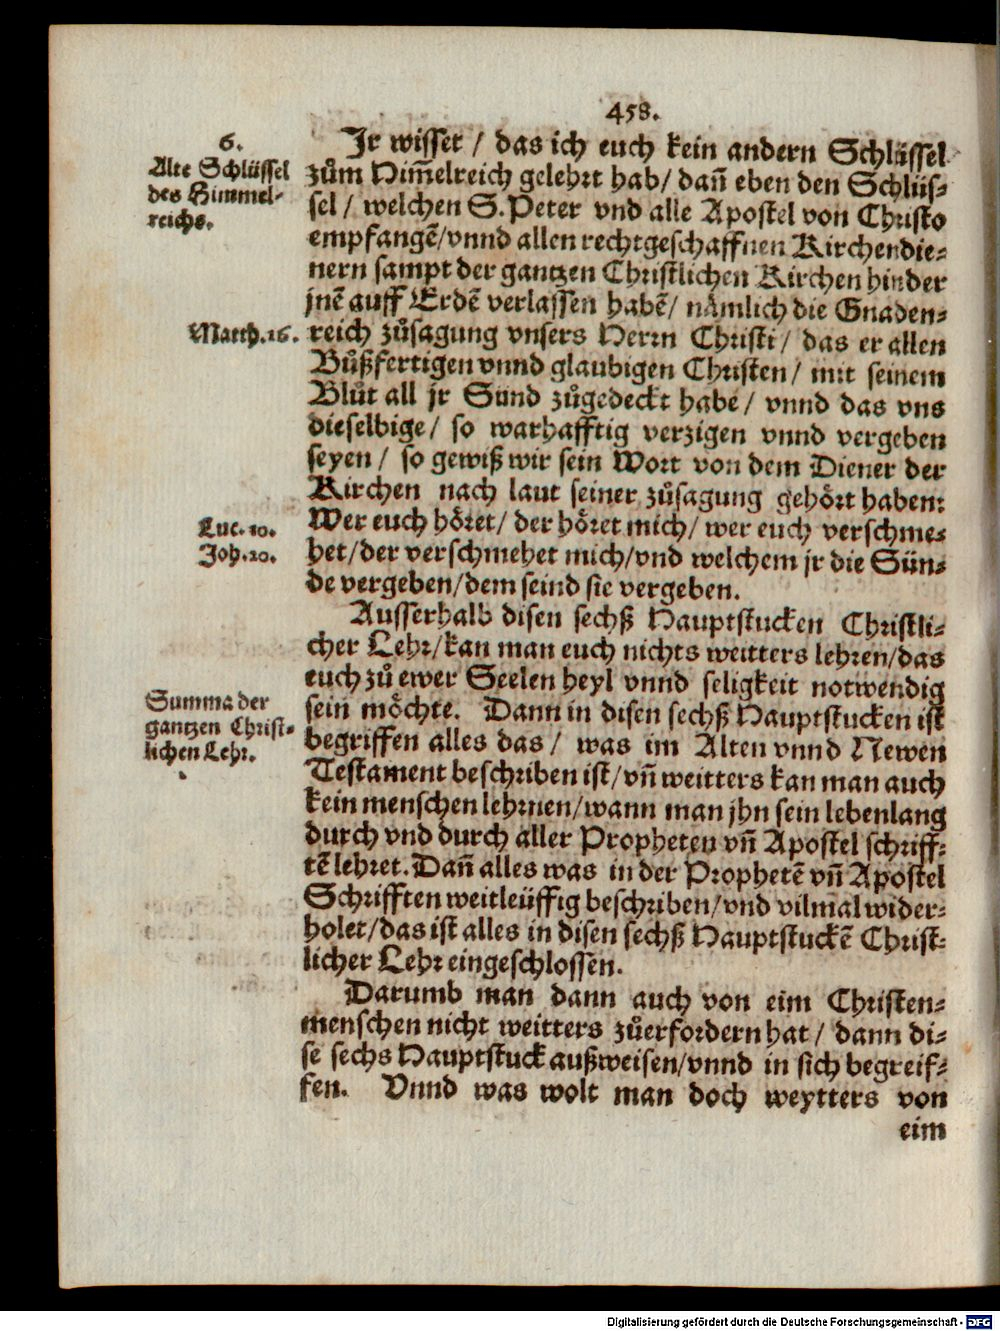 458.
6.
Alte Schlüssel
des Himmel-
reichs.
Matth.16.
Luc. 10.
Joh. 20.
Summa der
gantzen Christ-
lichen Lehr.
Jr wisset / das ich euch kein andern Schlüssel
zům Him̃elreich gelehrt hab / dañ eben den Schlüs-
sel / welchen S. Peter vnd alle Apostel von Christo
empfangẽ / vnnd allen rechtgeschaffnen Kirchendie-
nern sampt der gantzen Christlichen Kirchen hinder
jnẽ auff Erdẽ verlassen habẽ / nämlich die Gnaden-
reich zůsagung vnsers Herrn Christi / das er allen
Bůßfertigen vnnd glaubigen Christen / mit seinem
Blůt all jr Sünd zůgedeckt habe / vnnd das vns
dieselbige / so warhafftig verzigen vnnd vergeben
seyen / so gewiß wir sein Wort von dem Diener der
Kirchen nach laut seiner zůsagung gehört haben:
Wer euch höret / der höret mich / wer euch verschme-
het / der verschmehet mich / vnd welchem jr die Sün-
de vergeben / dem seind sie vergeben.
Ausserhalb disen sechß Hauptstucken Christli-
cher Lehr / kan man euch nichts weitters lehren / das
euch zů ewer Seelen heyl vnnd seligkeit notwendig
sein möchte. Dann in disen sechß Hauptstucken ist
begriffen alles das / was im Alten vnnd Newen
Testament beschriben ist / vñ weitters kan man auch
kein menschen lehrnen / wann man jhn sein lebenlang
durch vnd durch aller Propheten vñ Apostel schriff-
tẽ lehret. Dañ alles was in der Prophetẽ vñ Apostel
Schrifften weitleüffig beschriben / vnd vilmal wider-
holet / das ist alles in disen sechß Hauptstuckẽ Christ-
licher Lehr eingeschlossen.
Darumb man dann auch von eim Christen-
menschen nicht weitters zůerfordern hat / dann di-
se sechs Hauptstuck außweisen / vnnd in sich begreif-
fen. Vnnd was wolt man doch weytters von
eim
Digitalisierung gefördert durch die Deutsche Forschungsgemeinschaft - DFG